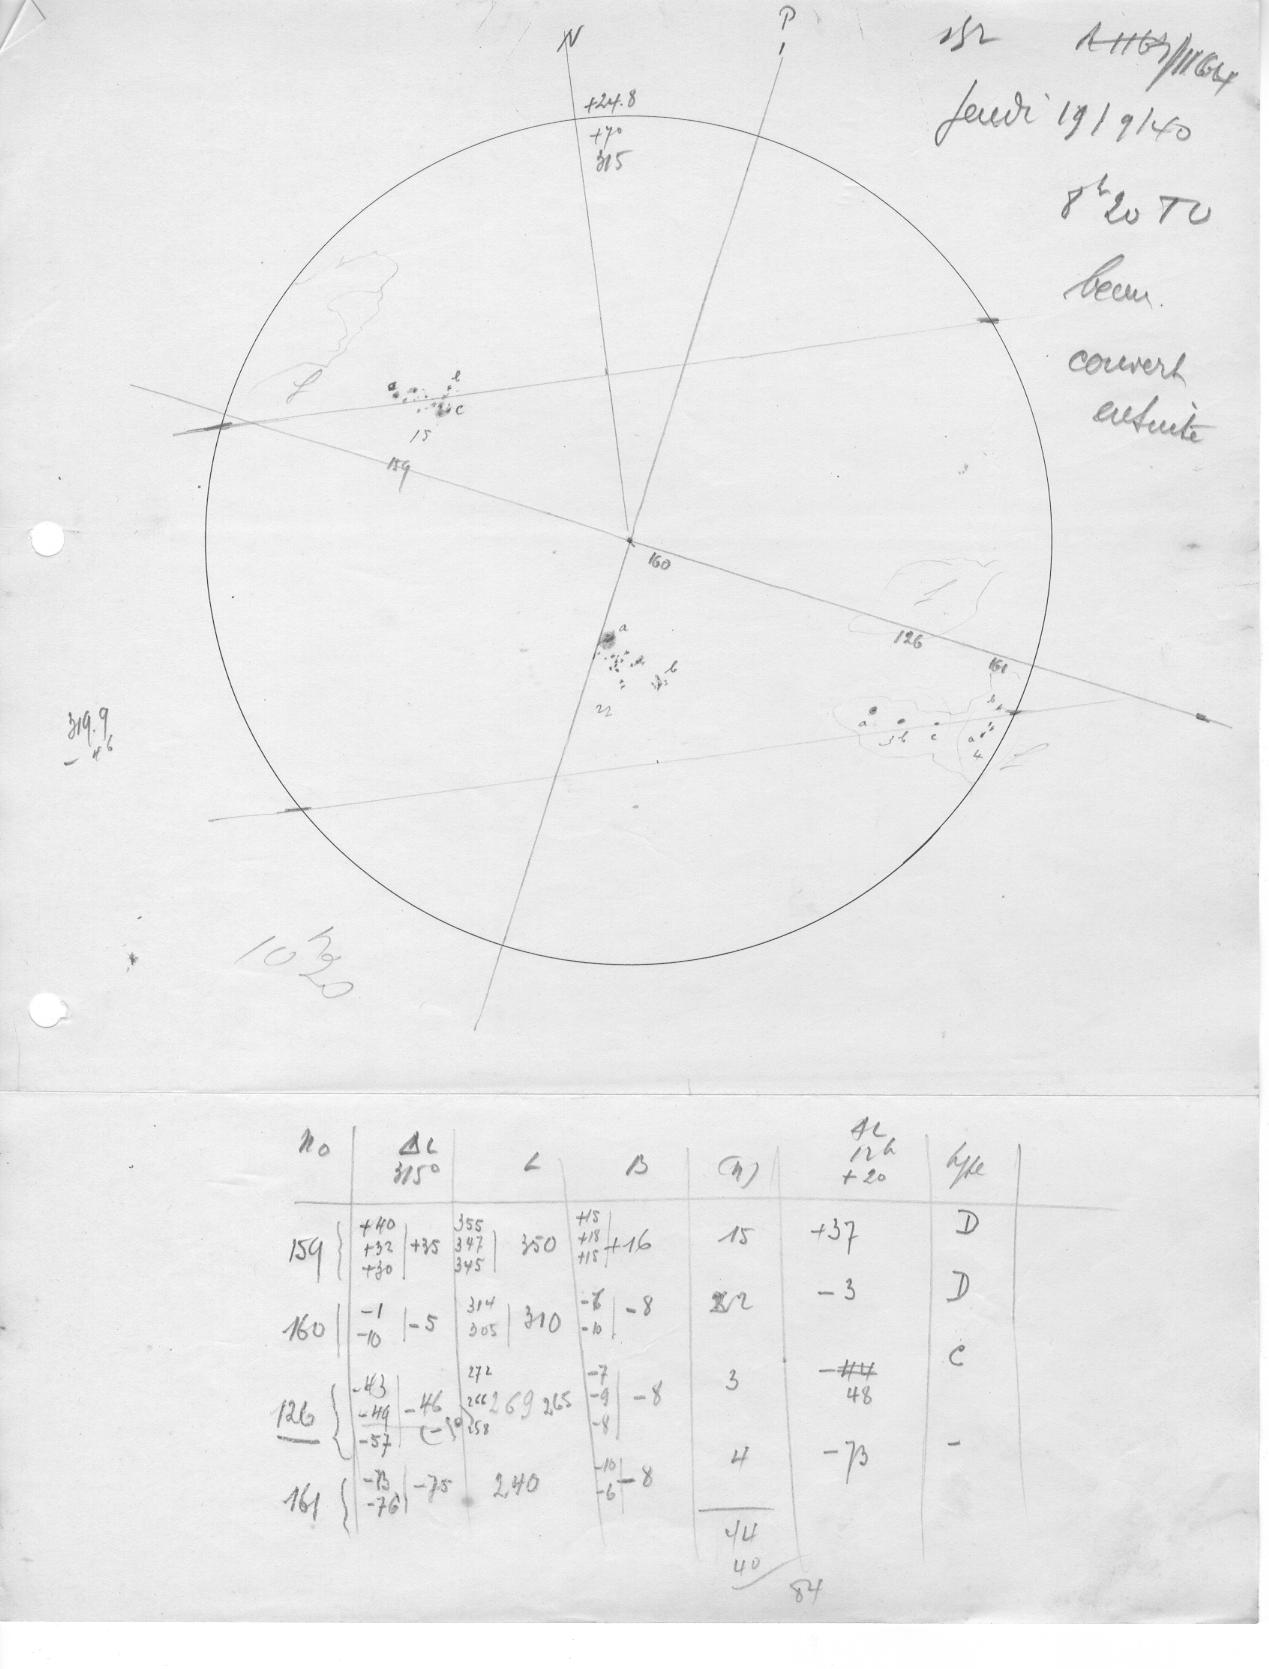 N
P
+24.8
+70
315
152
Jeudi 19/9/40
8h20 TU
beau.
couvert
ensuite
a
b
c
15
159
160
a
b
22
126
161
a
b
c
3
b
a
4
319.9
10h20
No ΔL 315° L B (n) ΔL 12h +20 type
159 +40 +32 +30 +35 355 347 345 350 +15 +18 +15 +16 15 +37 D
160 -1 -10 -5 314 305 310 -6 -10 -8 22 -3 D
126 -43 -49 -57 -46 272 266 258 269 265 -7 -9 -8 -8 3 -44 48 C
161 -73 -76 -75 240 -10 -6 -8 4 -73 -
44
40
84